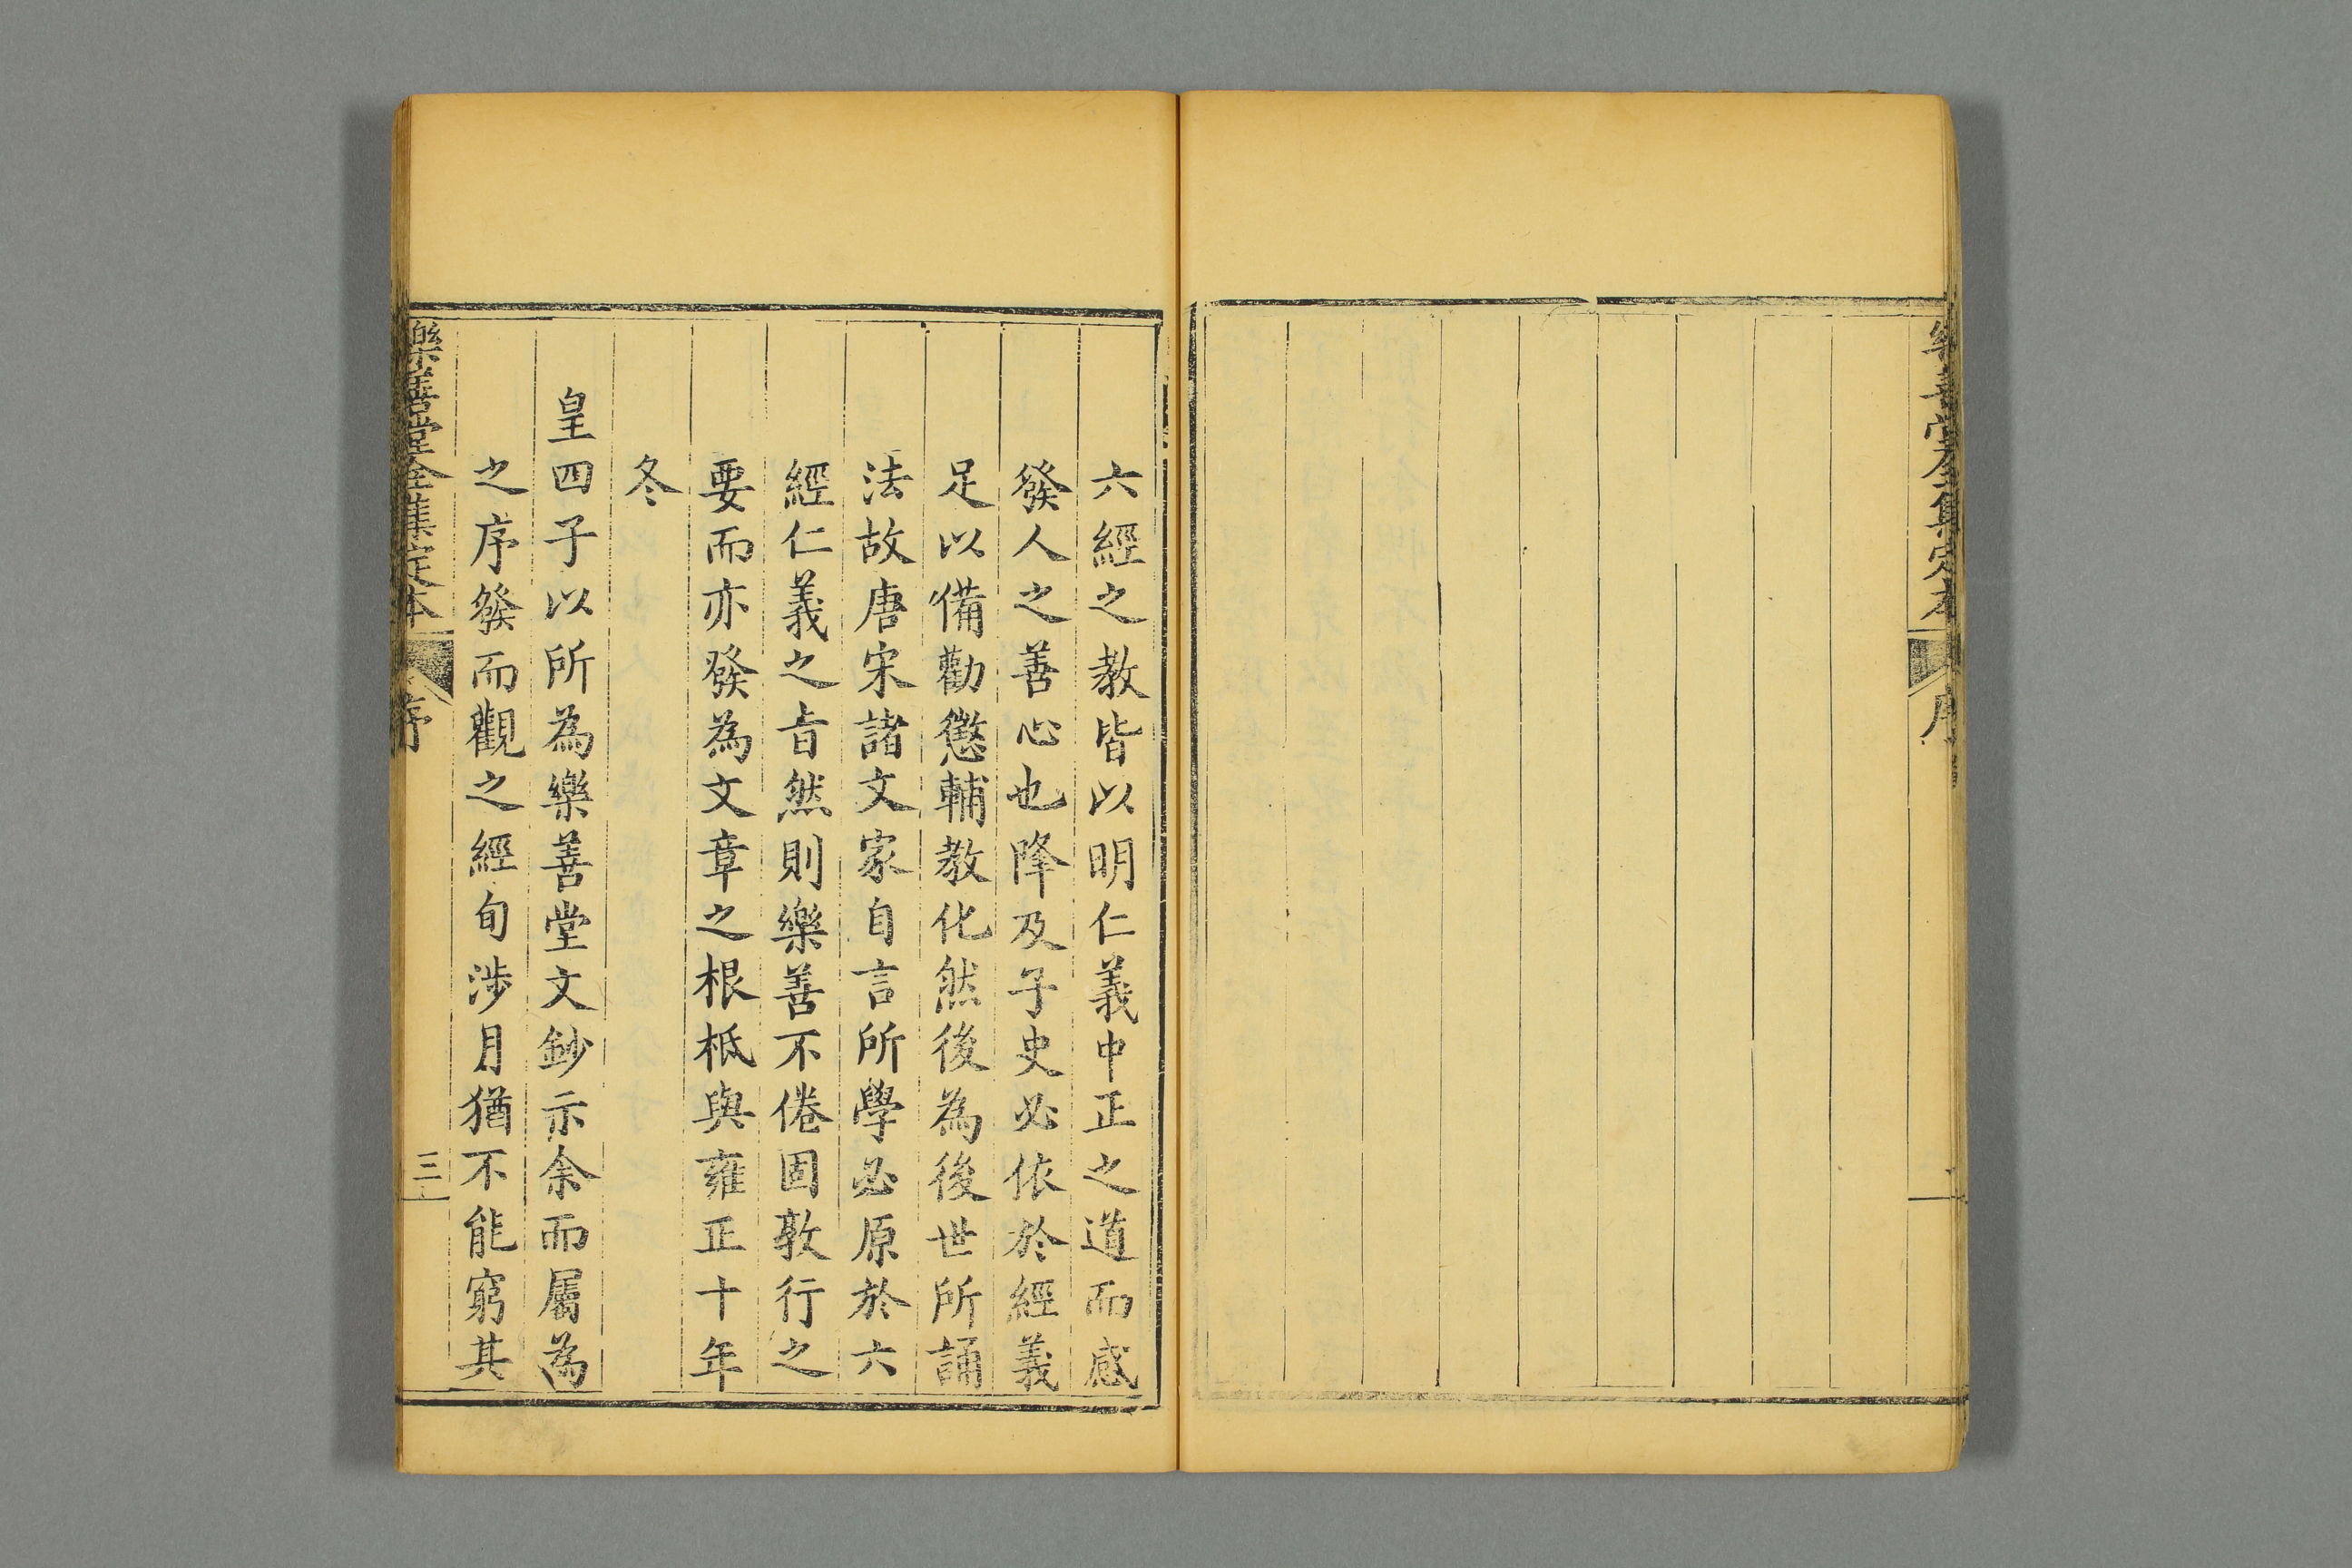 樂善堂全集定本
序
六經之教皆以明仁義中正之道而感
發人之善心也降及子史必依於經義
足以備勸懲輔教化然後為後世所誦
法故唐宋諸文家自言所學必原於六
經仁義之旨然則樂善不倦固敦行之
要而亦發為文章之根柢與雍正十年
冬
皇四子以所為樂善堂文鈔示余而屬為
之序發而觀之經旬涉月猶不能窮其
樂善堂全集定本
序
三